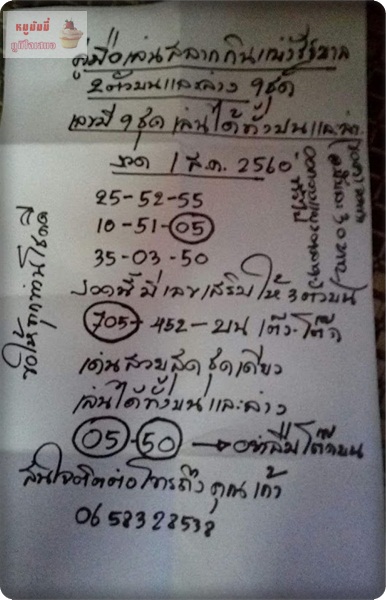 คู่มือเล่นสลากกินแบ่งรัฐบาล
2 ตัวบนและล่าง 9 ชุด
เลขมี 9 ชุด เล่นได้ทั้งบนและล่าง
งวด 1 ส.ค. 2560
25-52-55
10-51-05
35-03-50
งวดนี้มีเลขเสริมให้ 3 ตัวบน
705-452-บน เต็ง-โต๊ด
เด่นสวยสุดชุดเดียว
เล่นได้ทั้งบนและล่าง
05-50 → อย่าลืมโต๊ดบน
สนใจติดต่อโทรถึงคุณเก้า
0658328538
ขอให้ทุกท่านโชคดี